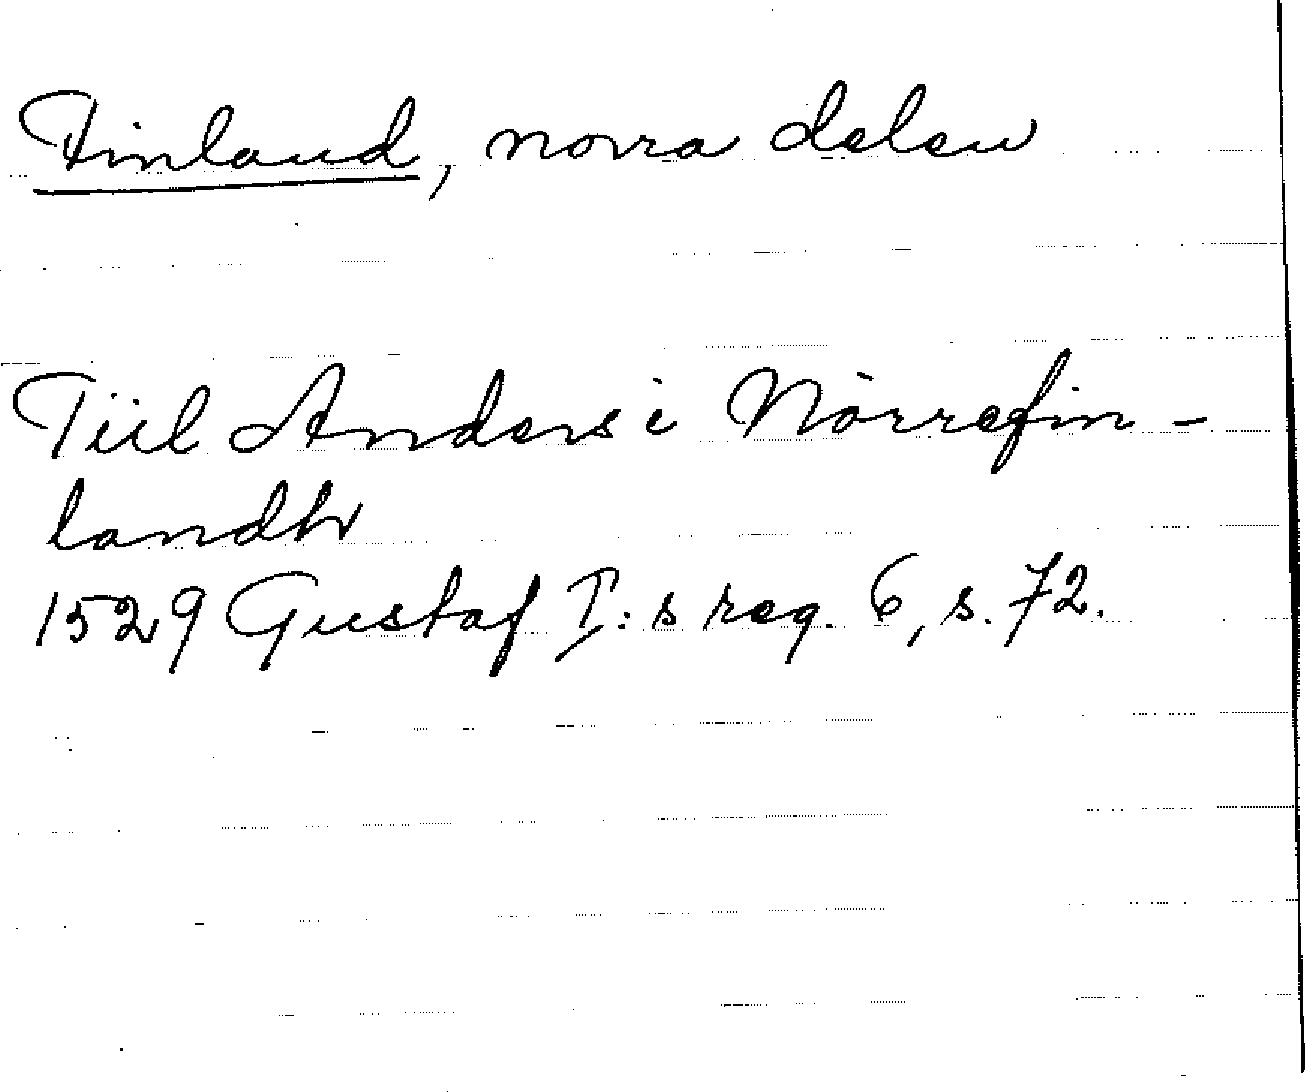 Finland, norra delen
Tiil Anders i Nörrefin-
landh
1529 Gustaf I:s reg. 6, s. 72.